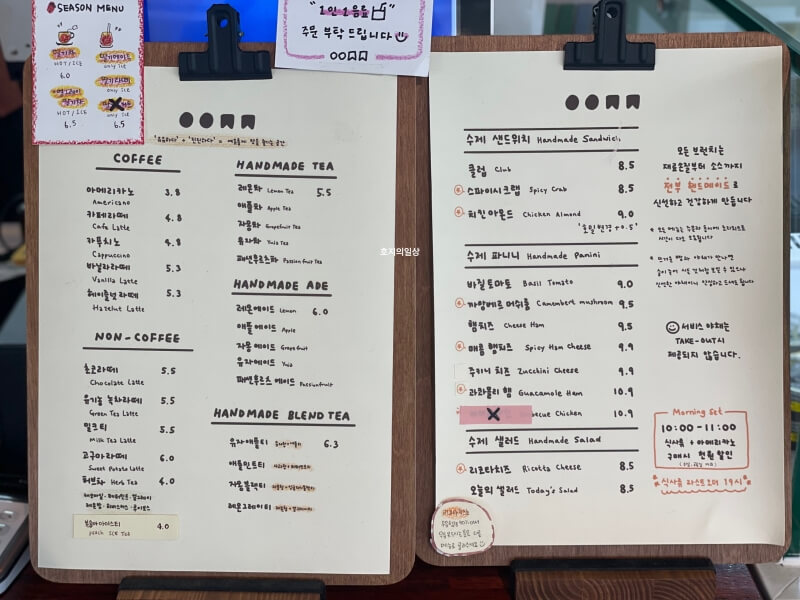 SEASON MENU
딸기라떼
HOT / ICE
6.0
딸기에이드
only ICE
HOT / ICE
6.5
only ICE
6.5
"1인 1음료"
주문 부탁 드립니다
COFFEE
아메리카노 3.8
Americano
카페라떼 4.8
Cafe Latte
카푸치노 4.8
Cappuccino
바닐라라떼 5.3
Vanilla Latte
헤이즐넛라떼 5.3
Hazelnut Latte
NON-COFFEE
초코라떼 5.5
Chocolate Latte
유기농 녹차라떼 5.5
Green Tea Latte
밀크티 5.5
Milk Tea Latte
고구마라떼 6.0
Sweet Potato Latte
허브차 Herb Tea 4.0
복숭아 아이스티 4.0
peach ICE Tea
HANDMADE TEA
레몬차 Lemon Tea 5.5
애플차 Apple Tea
자몽차 Grapefruit Tea
유자차 Yuja Tea
패션후르츠차 Passionfruit Tea
HANDMADE ADE
레몬에이드 Lemon 6.0
애플에이드 Apple
자몽에이드 Grapefruit
유자에이드 Yuja
패션후르츠 에이드 Passionfruit
HANDMADE BLEND TEA
유자애플티 6.3
애플민트티
자몽블랙티
레몬그레이티
호지의일상
수제 샌드위치 Handmade Sandwich
클럽 Club 8.5
스파이시크랩 Spicy Crab 8.5
치킨아몬드 Chicken Almond 9.0
호밀변경 +0.5
수제 파니니 Handmade Panini
바질토마토 Basil Tomato 9.0
까망베르 머쉬룸 Camembert mushroom 9.5
햄치즈 Cheese Ham 9.5
매콤 햄치즈 Spicy Ham Cheese 9.9
쥬키니 치즈 Zucchini Cheese 9.9
과카몰리 햄 Guacamole Ham 10.9
ecue Chicken 10.9
수제 샐러드 Handmade Salad
리코타치즈 Ricotta Cheese 8.5
오늘의 샐러드 Today's Salad 8.5
모든 브런치는
재료손질부터 소스까지
전부 핸드메이드로
신선하고 건강하게 만듭니다
서비스 야채는
TAKE-OUT시
제공되지 않습니다.
Morning Set
10:00 - 11:00
식사류 + 아메리카노
구매시 천원 할인
식사류 라스트오더 19시